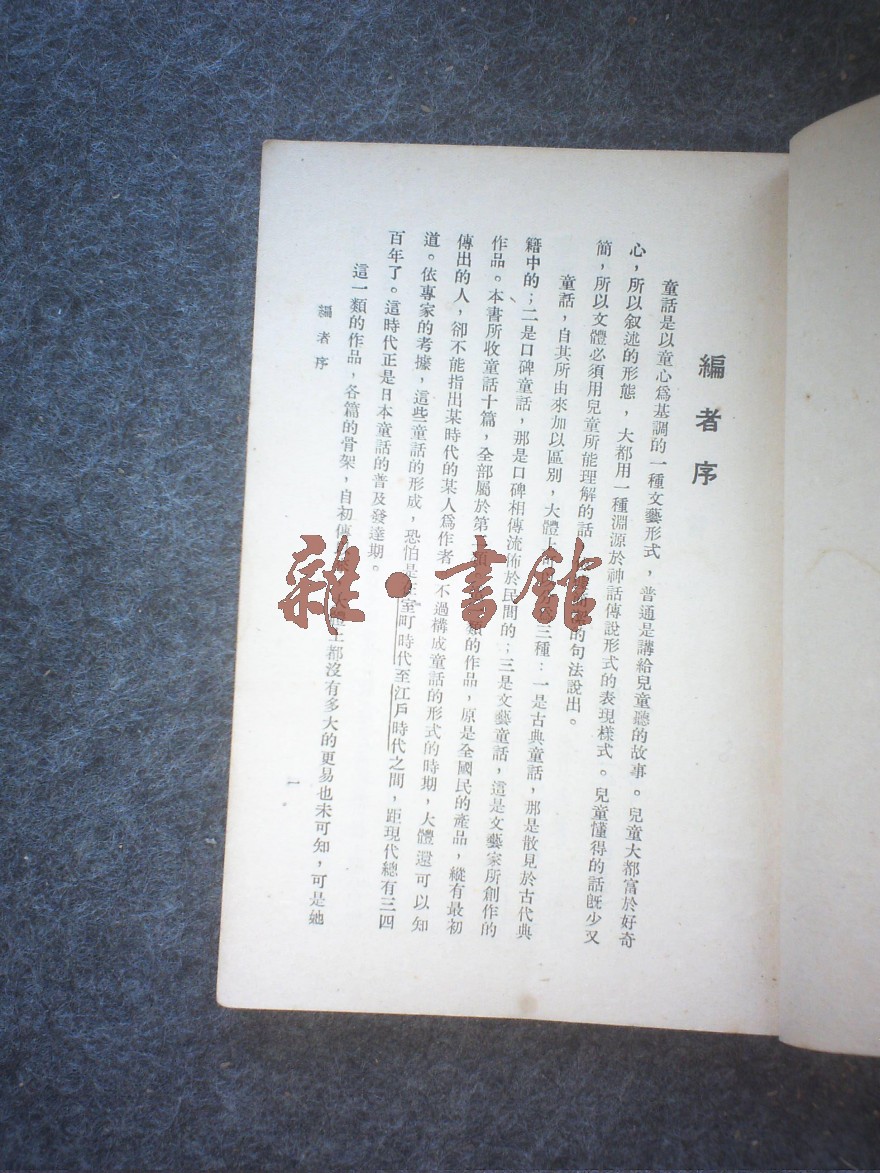 編者序
童話是以童心爲基調的一種文藝形式，普通是講給兒童聽的故事。兒童大都富於好奇
心，所以叙述的形態，大都用一種淵源於神話傳說形式的表現樣式。兒童懂得的話旣少又
簡，所以文體必須用兒童所能理解的話，的句法說出。
童話，自其所由來加以區別，大體上三種：一是古典童話，那是散見於古代典
籍中的；二是口碑童話，那是口碑相傳流佈於民間的；三是文藝童話，這是文藝家所創作的
作品。本書所收童話十篇，全部屬於第類的作品，原是全國民的產品，縱有最初
傳出的人，卻不能指出某時代的某人爲作者，不過構成童話的形式的時期，大體還可以知
道。依專家的考據，這些童話的形成，恐怕是在室町時代至江戶時代之間，距現代總有三四
百年了。這時代正是日本童話的普及發達期。
這一類的作品，各篇的骨架，自初傳上都沒有多大的更易也未可知，可是她
編者序
一
雜·書館